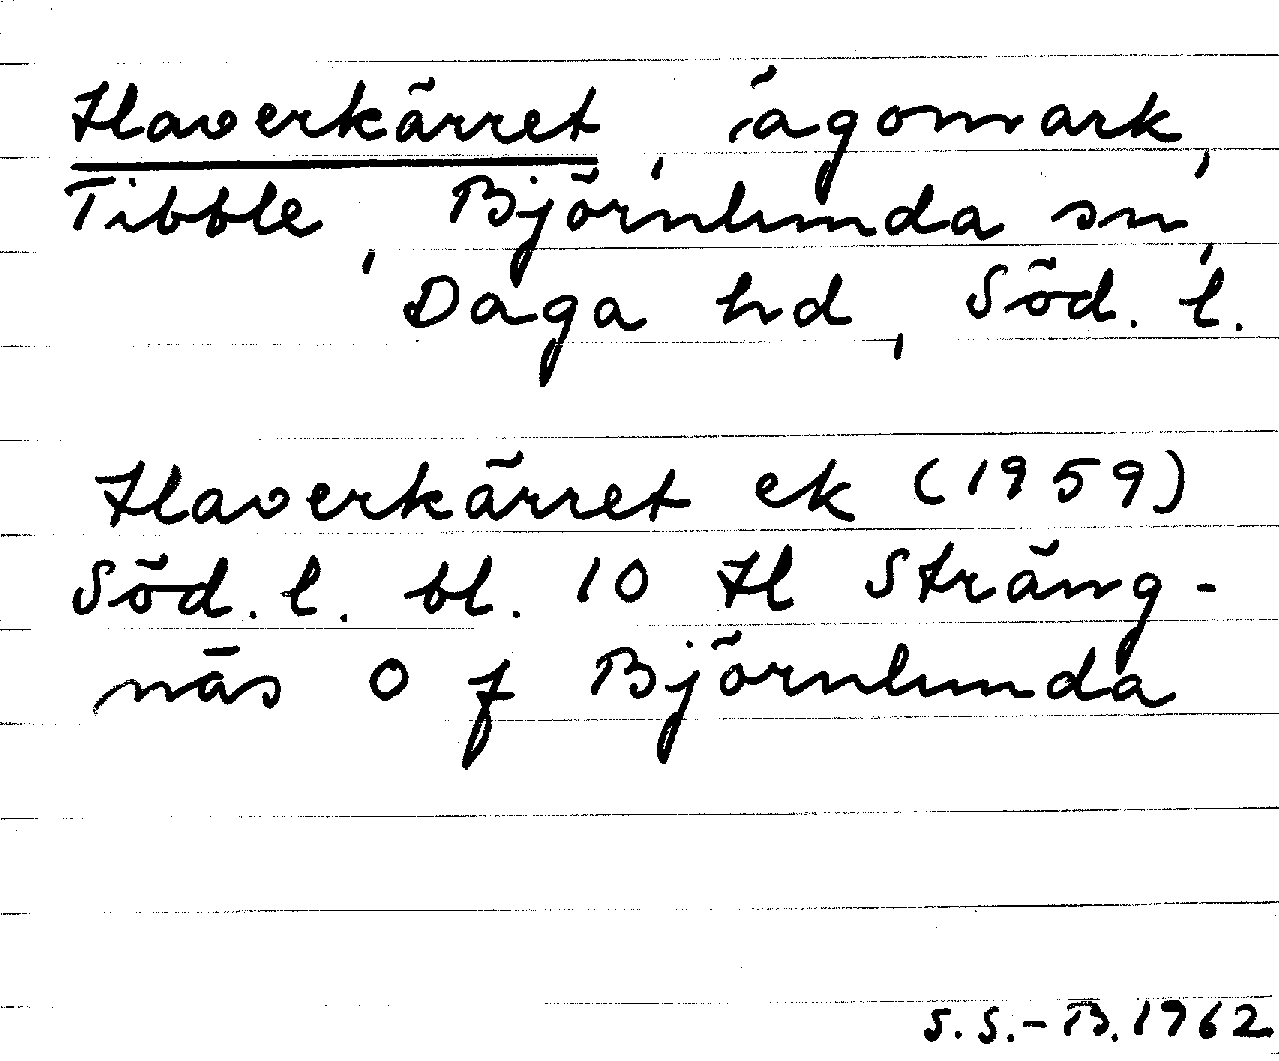 Haverkärret, ägomark,
Tibble, Björnlunda sn,
Daga hd, Söd. l.
Haverkärret ek (1959)
Söd. l. bl. 10 Hl Sträng-
näs O f Björnlunda
S.S.-B. 1962